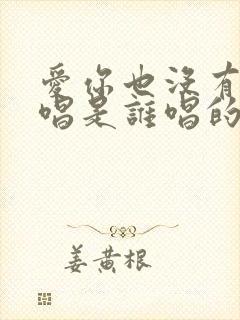 愛你也沒有
唱是誰唱的
姜黃根